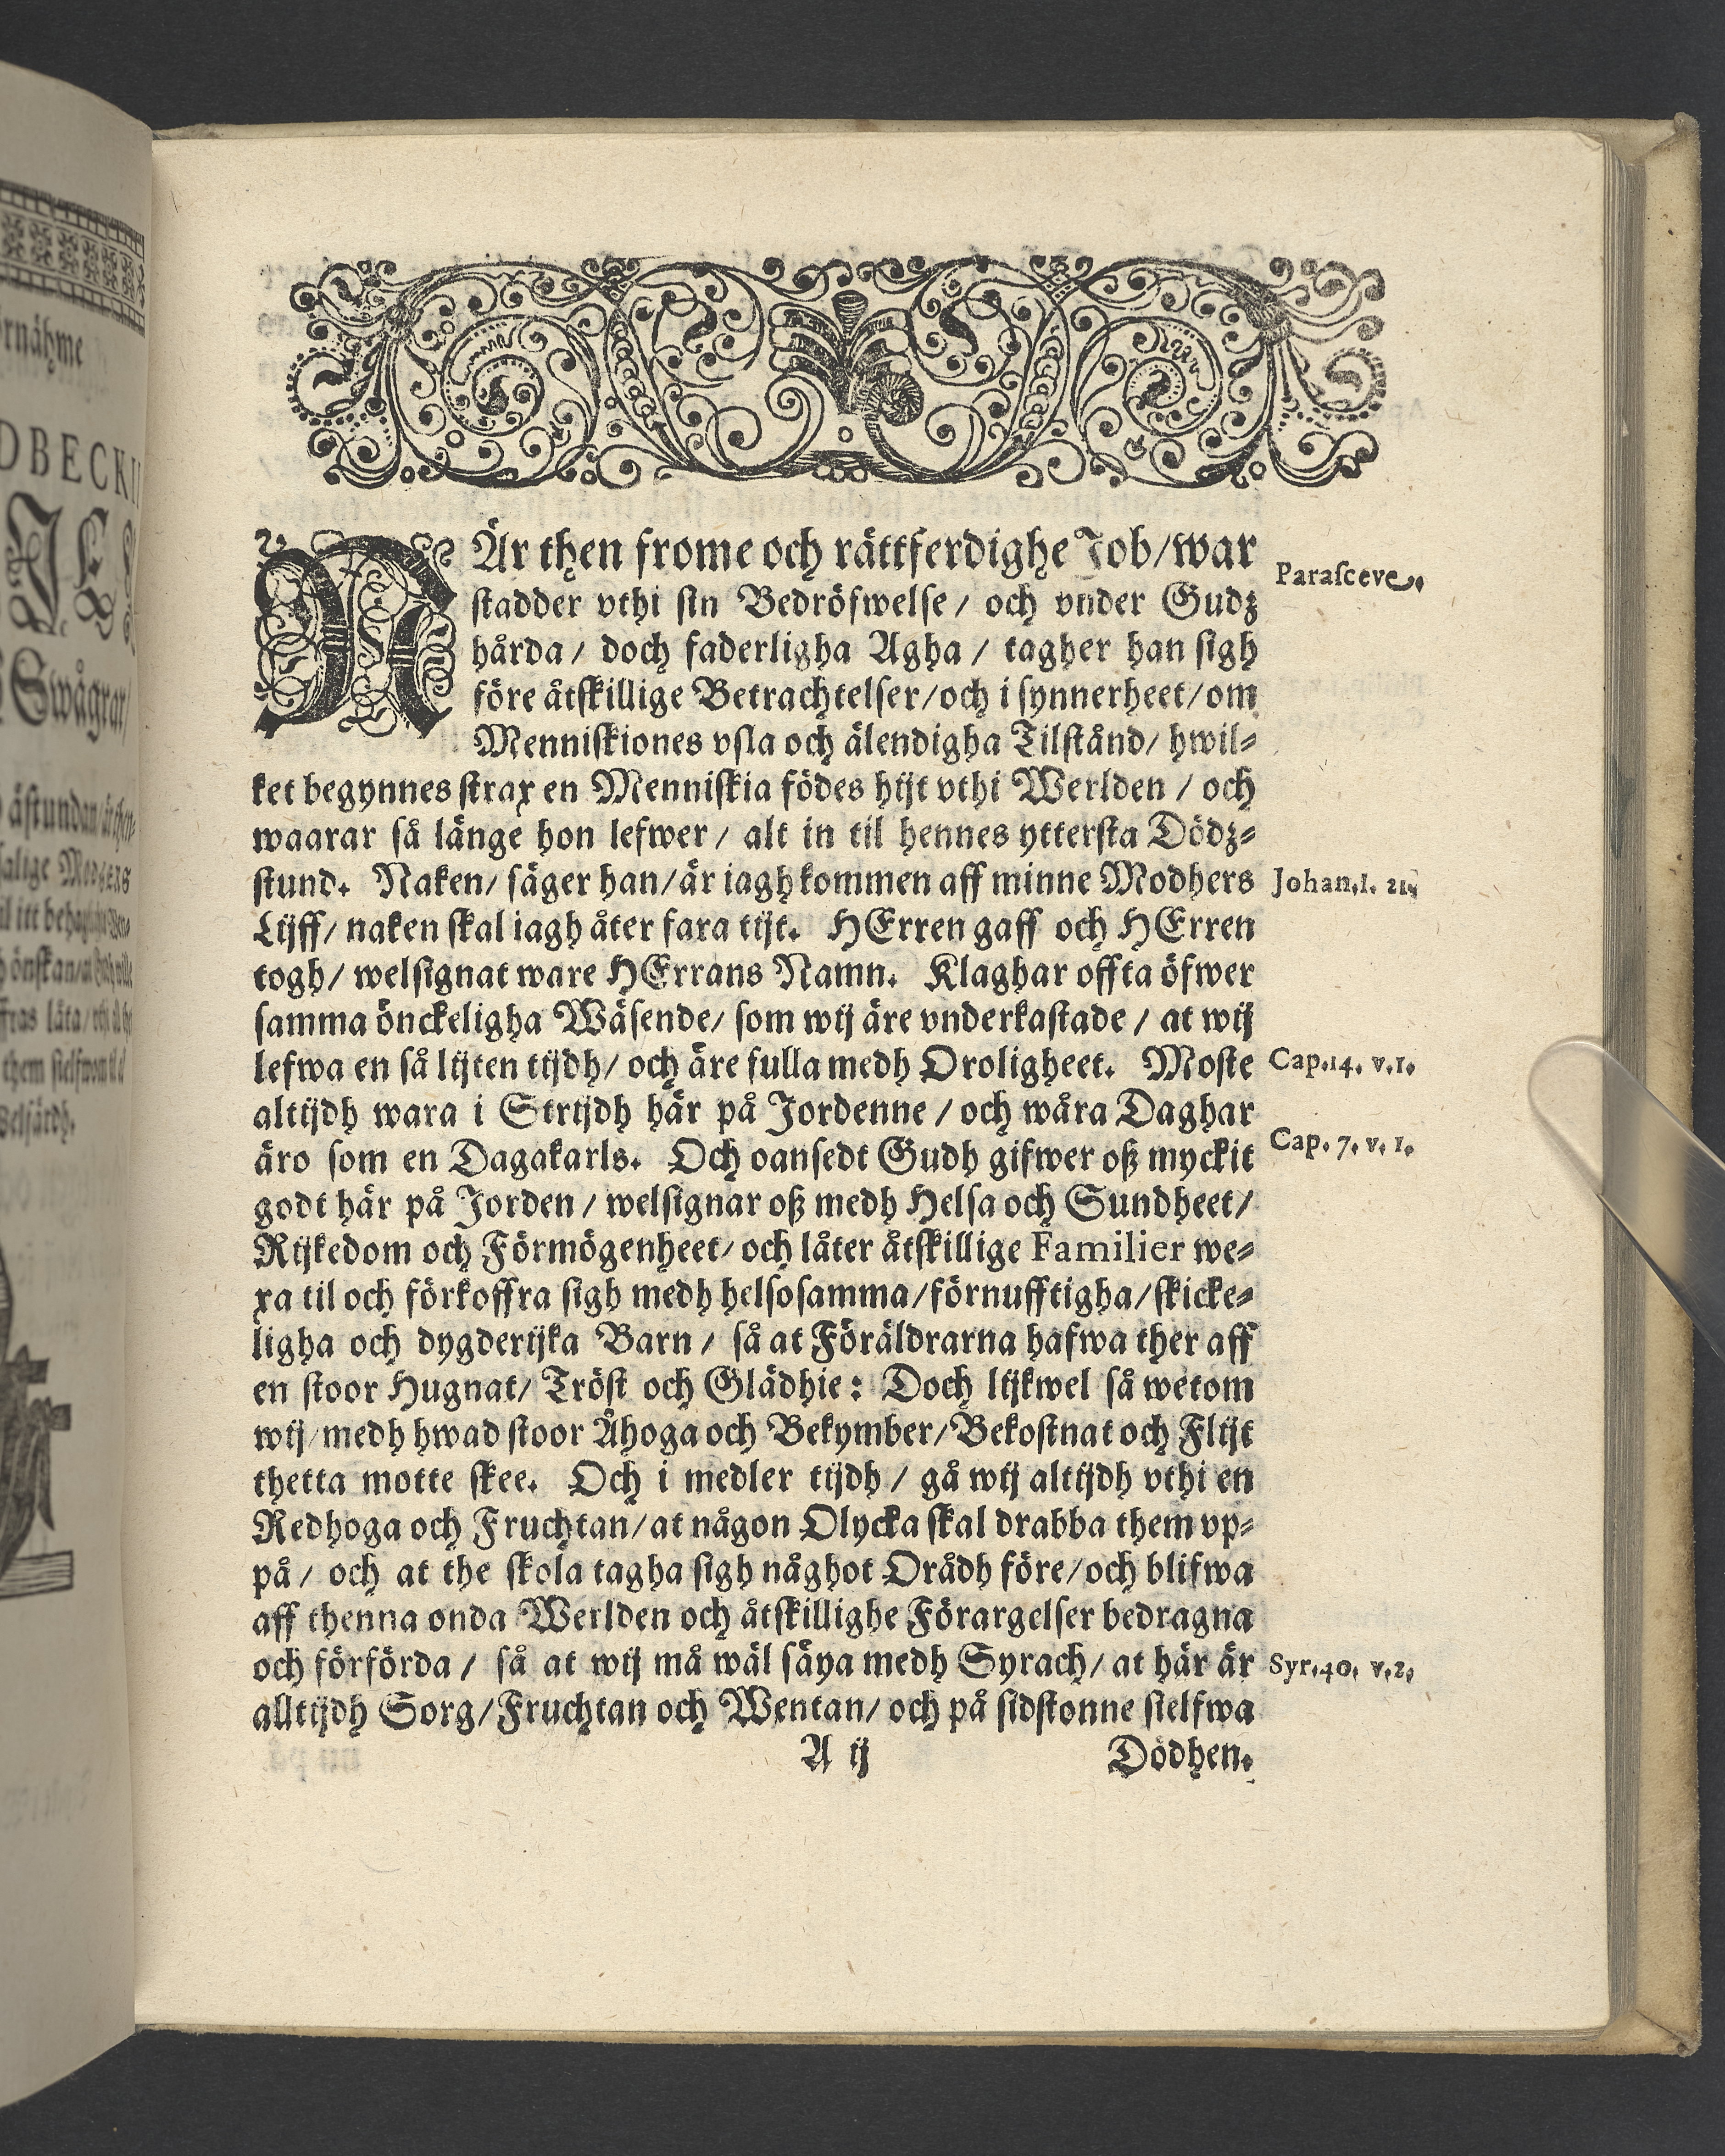 rnähme
DBECKII
Swågrar/
NÄr then frome och rättferdighe Job/war
Parasceve.
stadder vthi sin Bedröfwelse / och vnder Gudz
hårda / doch faderligha Agha / tagher han sigh
före åtskillige Betrachtelser/och i synnerheet/om
Menniskiones vsla och älendigha Tilstånd/ hwil-
ket begynnes strax en Menniskia födes hijt vthi Werlden / och
waarar så länge hon lefwer / alt in til hennes yttersta Dödz-
stund. Naken/ säger han/är iagh kommen aff minne Modhers
Johan.1. 21.
Lijff/ naken skal iagh åter fara tijt. HErren gaff och HErren
togh/ welsignat ware HErrans Namn. Klaghar offta öfwer
samma önckeligha Wäsende/ som wij äre vnderkastade / at wij
lefwa en så lijten tijdh/ och äre fulla medh Oroligheet. Moste
Cap.14. v.1.
altijdh wara i Strijdh här på Jordenne / och wåra Daghar
äro som en Dagakarls. Och oansedt Gudh gifwer oß myckit
Cap. 7. v. 1.
godt här på Jorden / welsignar oß medh Helsa och Sundheet/
Rijkedom och Förmögenheet/ och låter åtskillige Familier we-
xa til och förkoffra sigh medh helsosamma/förnufftigha/skicke-
ligha och dygderijka Barn / så at Föräldrarna hafwa ther aff
en stoor Hugnat/ Tröst och Glädhie: Doch lijkwel så wetom
wij/medh hwad stoor Åhoga och Bekymber/Bekostnat och Flijt
thetta motte skee. Och i medler tijdh / gå wij altijdh vthi en
Redhoga och Fruchtan/at någon Olycka skal drabba them vp-
på / och at the skola tagha sigh någhot Orådh före/och blifwa
aff thenna onda Werlden och åtskillighe Förargelser bedragna
och förförda / så at wij må wäl säya medh Syrach/ at här är
Syr.40. v.2.
alltijdh Sorg/Fruchtan och Wentan/ och på sidstonne sielfwa
A ij
Dödhen.